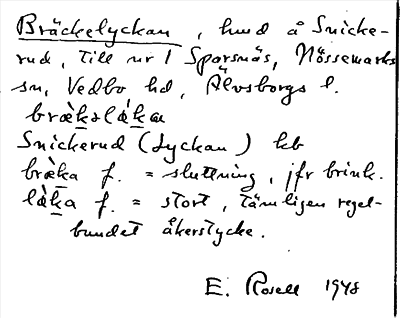 Bräckelyckan, hmd å Snicke-
rud, till nr 1 Sparsnäs, Nössemarks
sn, Vedbo hd, Älvsborgs l.
Snickerud (Lyckan) kb
bræ̀ka f. = sluttning, jfr brink.
f. = stort, tämligen regel-
bundet åkerstycke.
E. Rosell 1948